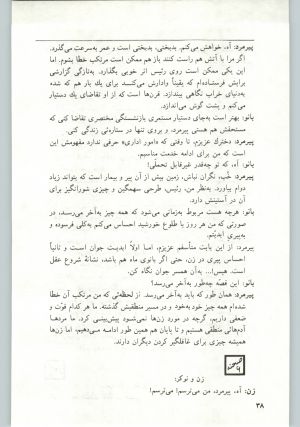 پیرمرد: آه، خواهش می‌کنم. بدبختی، بدبختی است و عمر به‌سرعت می‌گذرد.
اگر مرا با آتش هم راست کنند باز هم ممکن است مرتکب خطا بشوم. اما
این یکی ممکن است روی رئیس اثر خوبی بگذارد. به‌تازگی گزارشی
برایش فرستاده‌ام که یقیناً وادارش می‌کند برای یك بار هم که شده
به‌دنیای خراب نگاهی بیندازد. قرن‌ها است که از او تقاضای یك دستیار
می‌کنم و پشت گوش می‌اندازد.
بانو: بهتر است به‌جای دستیار مستمری بازنشستگی مختصری تقاضا کنی که
مستحقش هم هستی پیرمرد، و بروی تنها در ستاره‌ئی زندگی کنی.
پیرمرد: دخترك عزیزم، تا وقتی که «امور اداری» حرفی ندارد مفهومش این
است که من برای ادامه خدمت مناسبم.
بانو: آه، که تو چه‌قدر غیرقابل تحملی!
پیرمرد: خُب، نگران نباش، زمین بیش از آن پیر و بیمار است که بتواند زیاد
دوام بیاورد. به‌نظر من، رئیس، طرحی سهمگین و چیزی شورانگیز برای
آن در آستینش دارد.
بانو: هرچه هست مربوط به‌زمانی می‌شود که همه چیز به‌آخر می‌رسد، در
صورتی که من هر روز با طلوع خورشید احساس می‌کنم به‌کلی فرسوده و
به‌پیری ابدیتم.
پیرمرد: از این بابت متأسفم عزیزم، اما اولاً ابدیت جوان است و ثانیاً
احساس پیری در زن، حتی اگر بانوی ماه هم باشد، نشانهٔ شروع عقل
است. هیس!... به‌آن همسر جوان نگاه کن.
بانو: این قصه چه‌طور به‌آخر می‌رسد؟
پیرمرد: همان طور که باید به‌آخر می‌رسد. از لحظه‌ئی که من مرتکب آن خطا
شده‌ام همه چیز خود به‌خود و در مسیر منطقیش گذشته. ما هر کدام قوّت و
ضعفی داریم، گرچه در مورد زن‌ها نمی‌شود پیش‌بینی کرد. ما مردها
آدم‌هائی منطقی هستیم و تا پایان هم همین طور ادامه می‌دهیم، اما زن‌ها
همیشه چیزی برای غافلگیر کردن دیگران دارند.
صحنه
زن و نوکر:
زن: آه، پیرمرد، من می‌ترسم! می‌ترسم!
۳۸